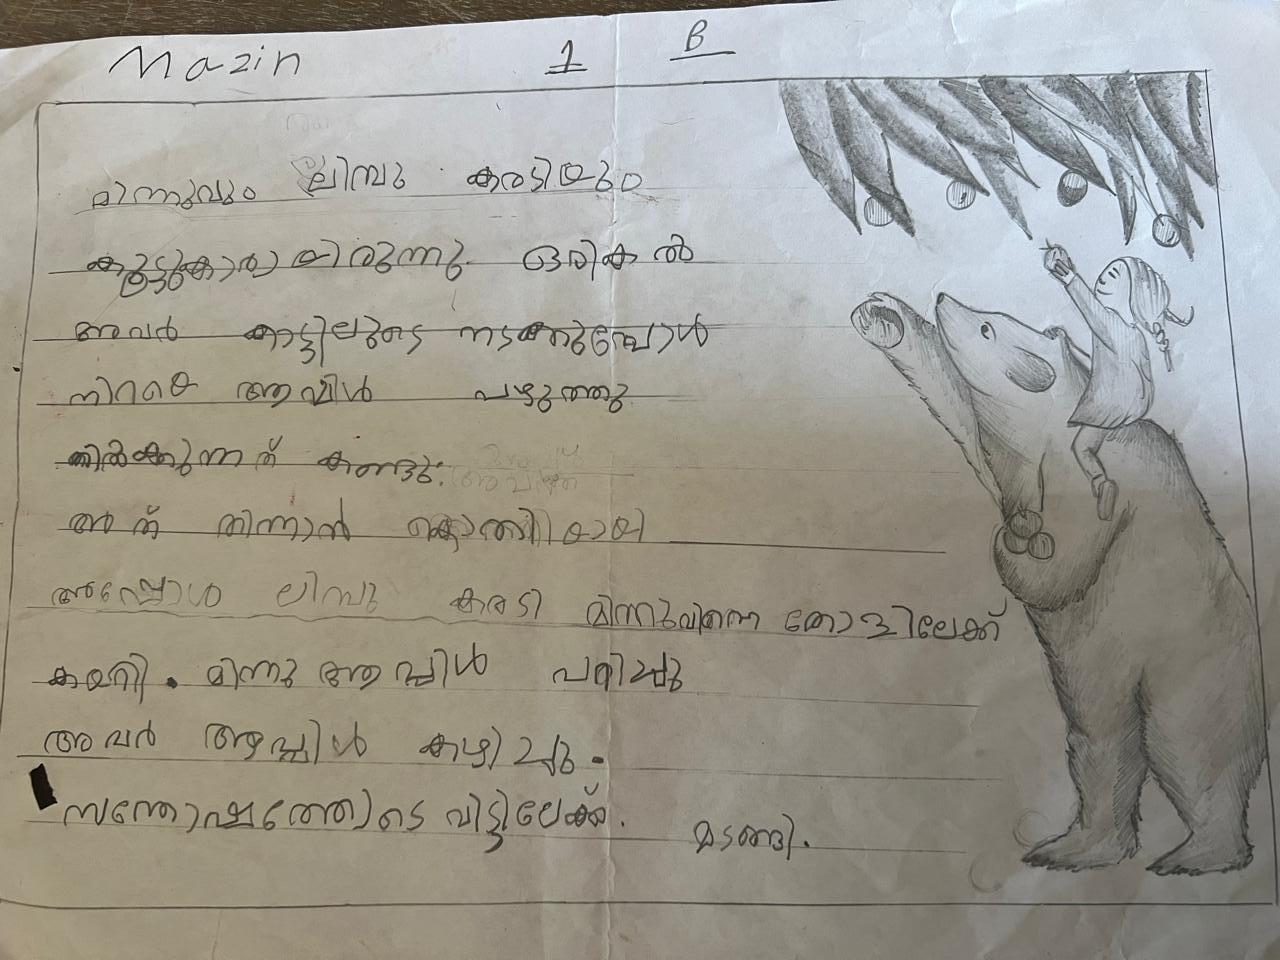 Mazin 1 B
മിന്നുവും ലിമ്പു കരടിയും
കൂട്ടുകാരായിരുന്നു. ഒരികൽ
അവർ കാട്ടിലുടെ നടക്കുമ്പോൾ
നിറയെ ആപ്പിൾ പഴുത്തു
നിൽക്കുന്നത് കണ്ടു.
അത് തിന്നാൻ കൊതിയായി
അപ്പോൾ ലിമ്പു കരടി മിന്നുവിനെ തോളിലേക്ക്
കയറി. മിന്നു ആപ്പിൾ പറിച്ചു
അവർ ആപ്പിൾ കഴിച്ചു.
സന്തോഷത്തോടെ വിട്ടിലേക്ക്. മടങ്ങി.